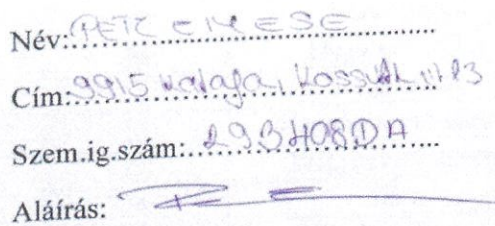 Név: PETZ EMESE
Cím: 9915 Katafa, Kossuth u 23
Szem.ig.szám: 293408DA
Aláírás: